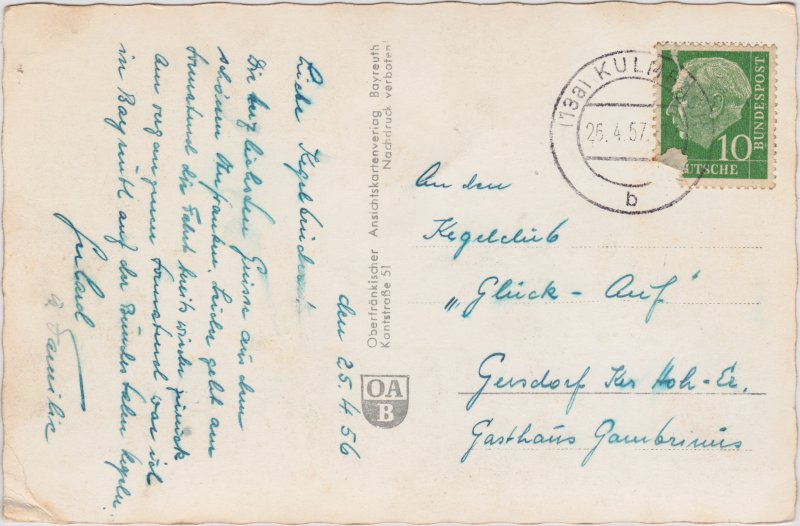 den 25.4.56
Liebe Kegelbrüder!
Die herzlichsten Grüsse aus dem
schönen Oberfranken. Leider geht am
Sonnabend die Fahrt bereits wieder zurück
Am vergangenen Sonnabend war ich
in Bayreuth auf der Bundes bahn kegeln.
Familie
Oberfränkischer Ansichtskartenverlag Bayreuth
Kantstraße 51 Nachdruck verboten!
OA
B
(13a) KULM
26.4.57
b
10
BUNDESPOST
UTSCHE
An den
Kegelclub
„Glück - Auf"
Gersdorf Krs Hoh-Er.
Gasthaus Gambrinus